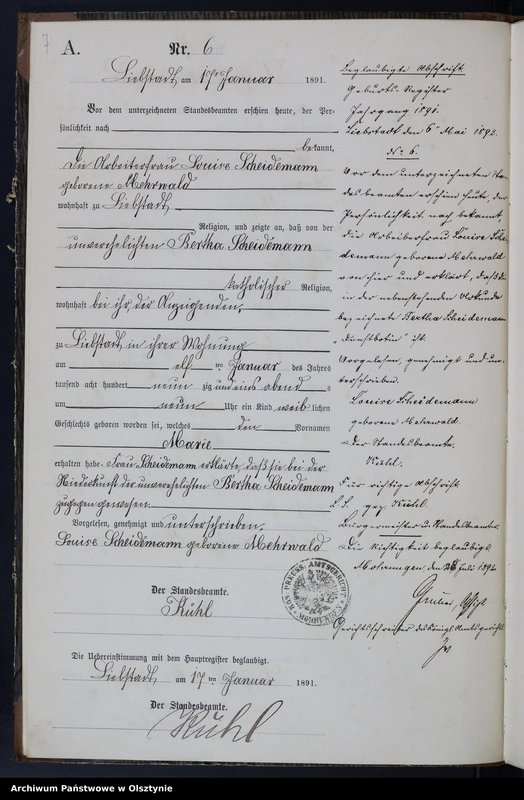 7
A.
Nr. 6
Liebstadt am 17ten Januar 1891.
Vor dem unterzeichneten Standesbeamten erschien heute, der Per-
sönlichkeit nach
bekannt,
die Arbeiterfrau Louise Scheidemann
geborene Mehrwald
wohnhaft zu Liebstadt,
Religion, und zeigte an, daß von der
unverehelichten Bertha Scheidemann
katholischer Religion,
wohnhaft bei ihr, der Anzeigenden,
zu Liebstadt, in ihrer Wohnung
am elf ten Januar des Jahres
tausend acht hundert neun zig und eins abend s
um neun Uhr ein Kind weib lichen
Geschlechts geboren worden sei, welches den Vornamen
Marie
erhalten habe. Frau Scheidemann erklärte, daß sie bei der
Niederkunft der unverehelichten Bertha Scheidemann
zugegen gewesen.
Vorgelesen, genehmigt und unterschrieben.
Louise Scheidemann geborene Mehrwald
Der Standesbeamte.
Kühl
Die Uebereinstimmung mit dem Hauptregister beglaubigt.
Liebstadt, am 17 ten Januar 1891.
Der Standesbeamte.
Kühl
Beglaubigte Abschrift.
Geburts-Register
Jahrgang 1891.
Liebstadt den 6ten Mai 1892.
No 6.
Vor dem unterzeichneten Stan-
desbeamten erschien heute, der
Persönlichkeit nach bekannt,
die Arbeiterfrau Louise Schei-
demann geborene Mehrwald
von hier und erklärt, daß die
in der nebenstehenden Urkunde
bezeichnete Bertha Scheidemann
"Dienstbotin" ist.
Vorgelesen, genehmigt und un-
terschrieben.
Louise Scheidemann
geborene Mehrwald
Der Standesbeamte.
Kühl.
Für richtige Abschrift
L. S. gez. Kühl.
Bürgermeister u. Standesbeamter.
Die Richtigkeit beglaubigt
Mohrungen, den 28 Juli 1892.
Gerichtsschreiber des Königl. Amtsgerichts
KÖN. PREUSS. AMTSGERICHT
MOHRUNGEN
Archiwum Państwowe w Olsztynie